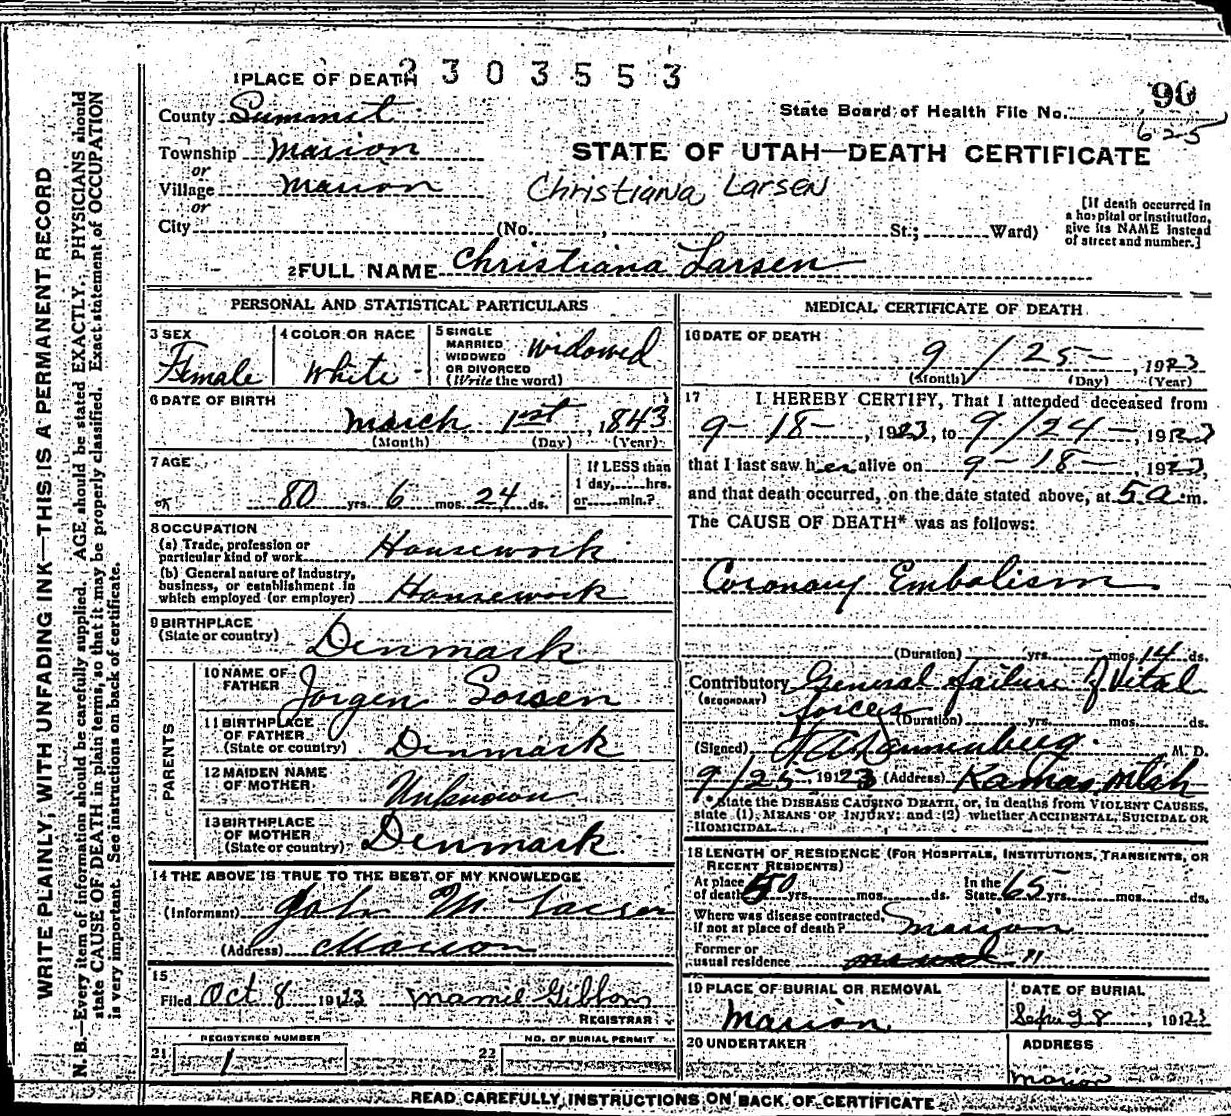 1 PLACE OF DEATH 2303553
90
County Summit
State Board of Health File No. 625
Township Marion
STATE OF UTAH—DEATH CERTIFICATE
or
Village Marion
Christiana Larsen
or
City (No. , St.; Ward)
[If death occurred in a hospital or institution, give its NAME instead of street and number.]
2 FULL NAME Christiana Larsen
PERSONAL AND STATISTICAL PARTICULARS
3 SEX Female
4 COLOR OR RACE White
5 SINGLE MARRIED WIDOWED OR DIVORCED (Write the word) widowed
6 DATE OF BIRTH
March 1st, 1843
(Month) (Day) (Year)
7 AGE
80 yrs. 6 mos. 24 ds.
If LESS than 1 day, hrs. or min.?
8 OCCUPATION
(a) Trade, profession or particular kind of work Housework
(b) General nature of industry, business, or establishment in which employed (or employer) Housework
9 BIRTHPLACE (State or country) Denmark
PARENTS
10 NAME OF FATHER Jorgen Sorsen
11 BIRTHPLACE OF FATHER (State or country) Denmark
12 MAIDEN NAME OF MOTHER Unknown
13 BIRTHPLACE OF MOTHER (State or country) Denmark
14 THE ABOVE IS TRUE TO THE BEST OF MY KNOWLEDGE
(Informant) John M Larsen
(Address) Marion
15
Filed Oct 8 1923 Mamie Gibbons
REGISTRAR
REGISTERED NUMBER
21 1
NO. OF BURIAL PERMIT
22
MEDICAL CERTIFICATE OF DEATH
16 DATE OF DEATH
9 / 25 — , 1923
(Month) (Day) (Year)
17 I HEREBY CERTIFY, That I attended deceased from
9 - 18 - , 1923, to 9/24 - , 1923
that I last saw her alive on 9 - 18 - , 1923,
and that death occurred, on the date stated above, at 5 a. m.
The CAUSE OF DEATH* was as follows:
Coronary Embolism
(Duration) yrs. mos. 14 ds.
Contributory (SECONDARY) General failure of Vital
forces (Duration) yrs. mos. ds.
(Signed) M. D.
9/25 1923 (Address) Kamas, Utah
* State the DISEASE CAUSING DEATH, or, in deaths from VIOLENT CAUSES,
state (1) MEANS OF INJURY; and (2) whether ACCIDENTAL, SUICIDAL OR
HOMICIDAL.
18 LENGTH OF RESIDENCE (FOR HOSPITALS, INSTITUTIONS, TRANSIENTS, OR
RECENT RESIDENTS)
At place of death 50 yrs. mos. ds. In the State 65 yrs. mos. ds.
Where was disease contracted, if not at place of death? Marion
Former or usual residence "
19 PLACE OF BURIAL OR REMOVAL
Marion
DATE OF BURIAL
Sept 28, 1923
20 UNDERTAKER
ADDRESS
Marion
READ CAREFULLY INSTRUCTIONS ON BACK OF CERTIFICATE
WRITE PLAINLY, WITH UNFADING INK—THIS IS A PERMANENT RECORD
N. B.—Every item of information should be carefully supplied. AGE should be stated EXACTLY. PHYSICIANS should
state CAUSE OF DEATH in plain terms, so that it may be properly classified. Exact statement of OCCUPATION
is very important. See instructions on back of certificate.